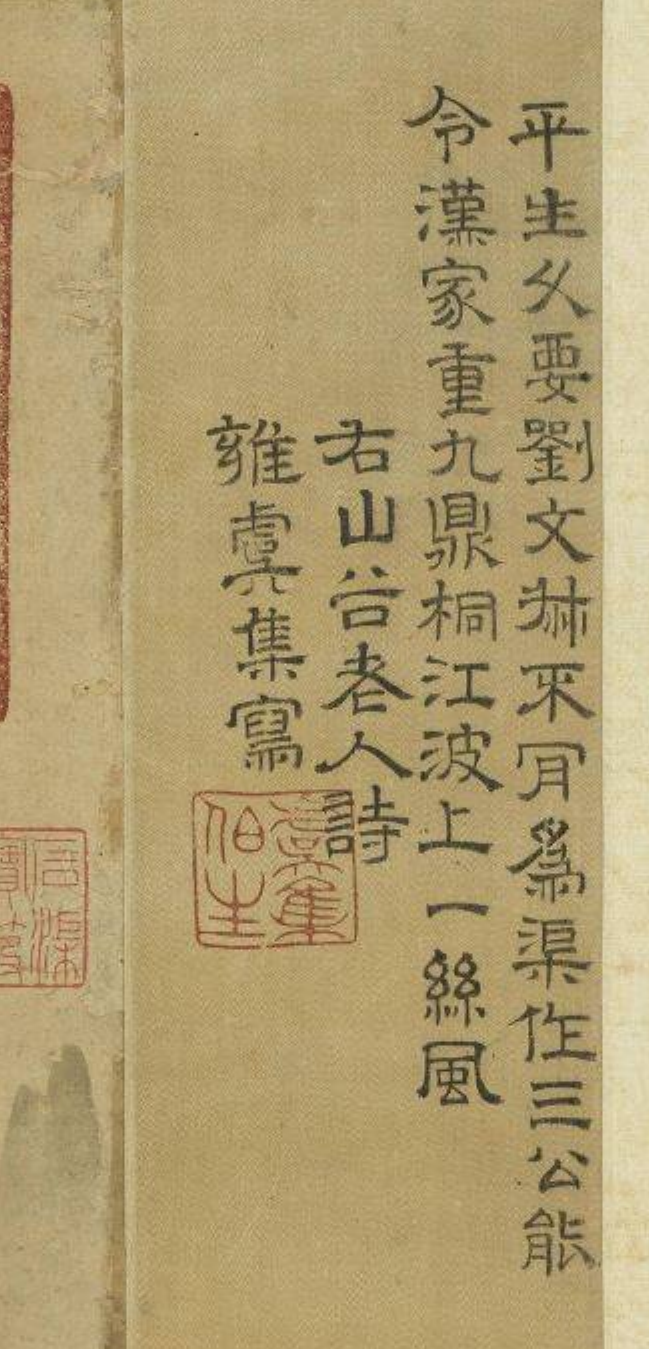 平生久要劉文叔不肯爲渠作三公能
令漢家重九鼎桐江波上一絲風
右山谷老人詩
雍虞集寫
虞集
伯生